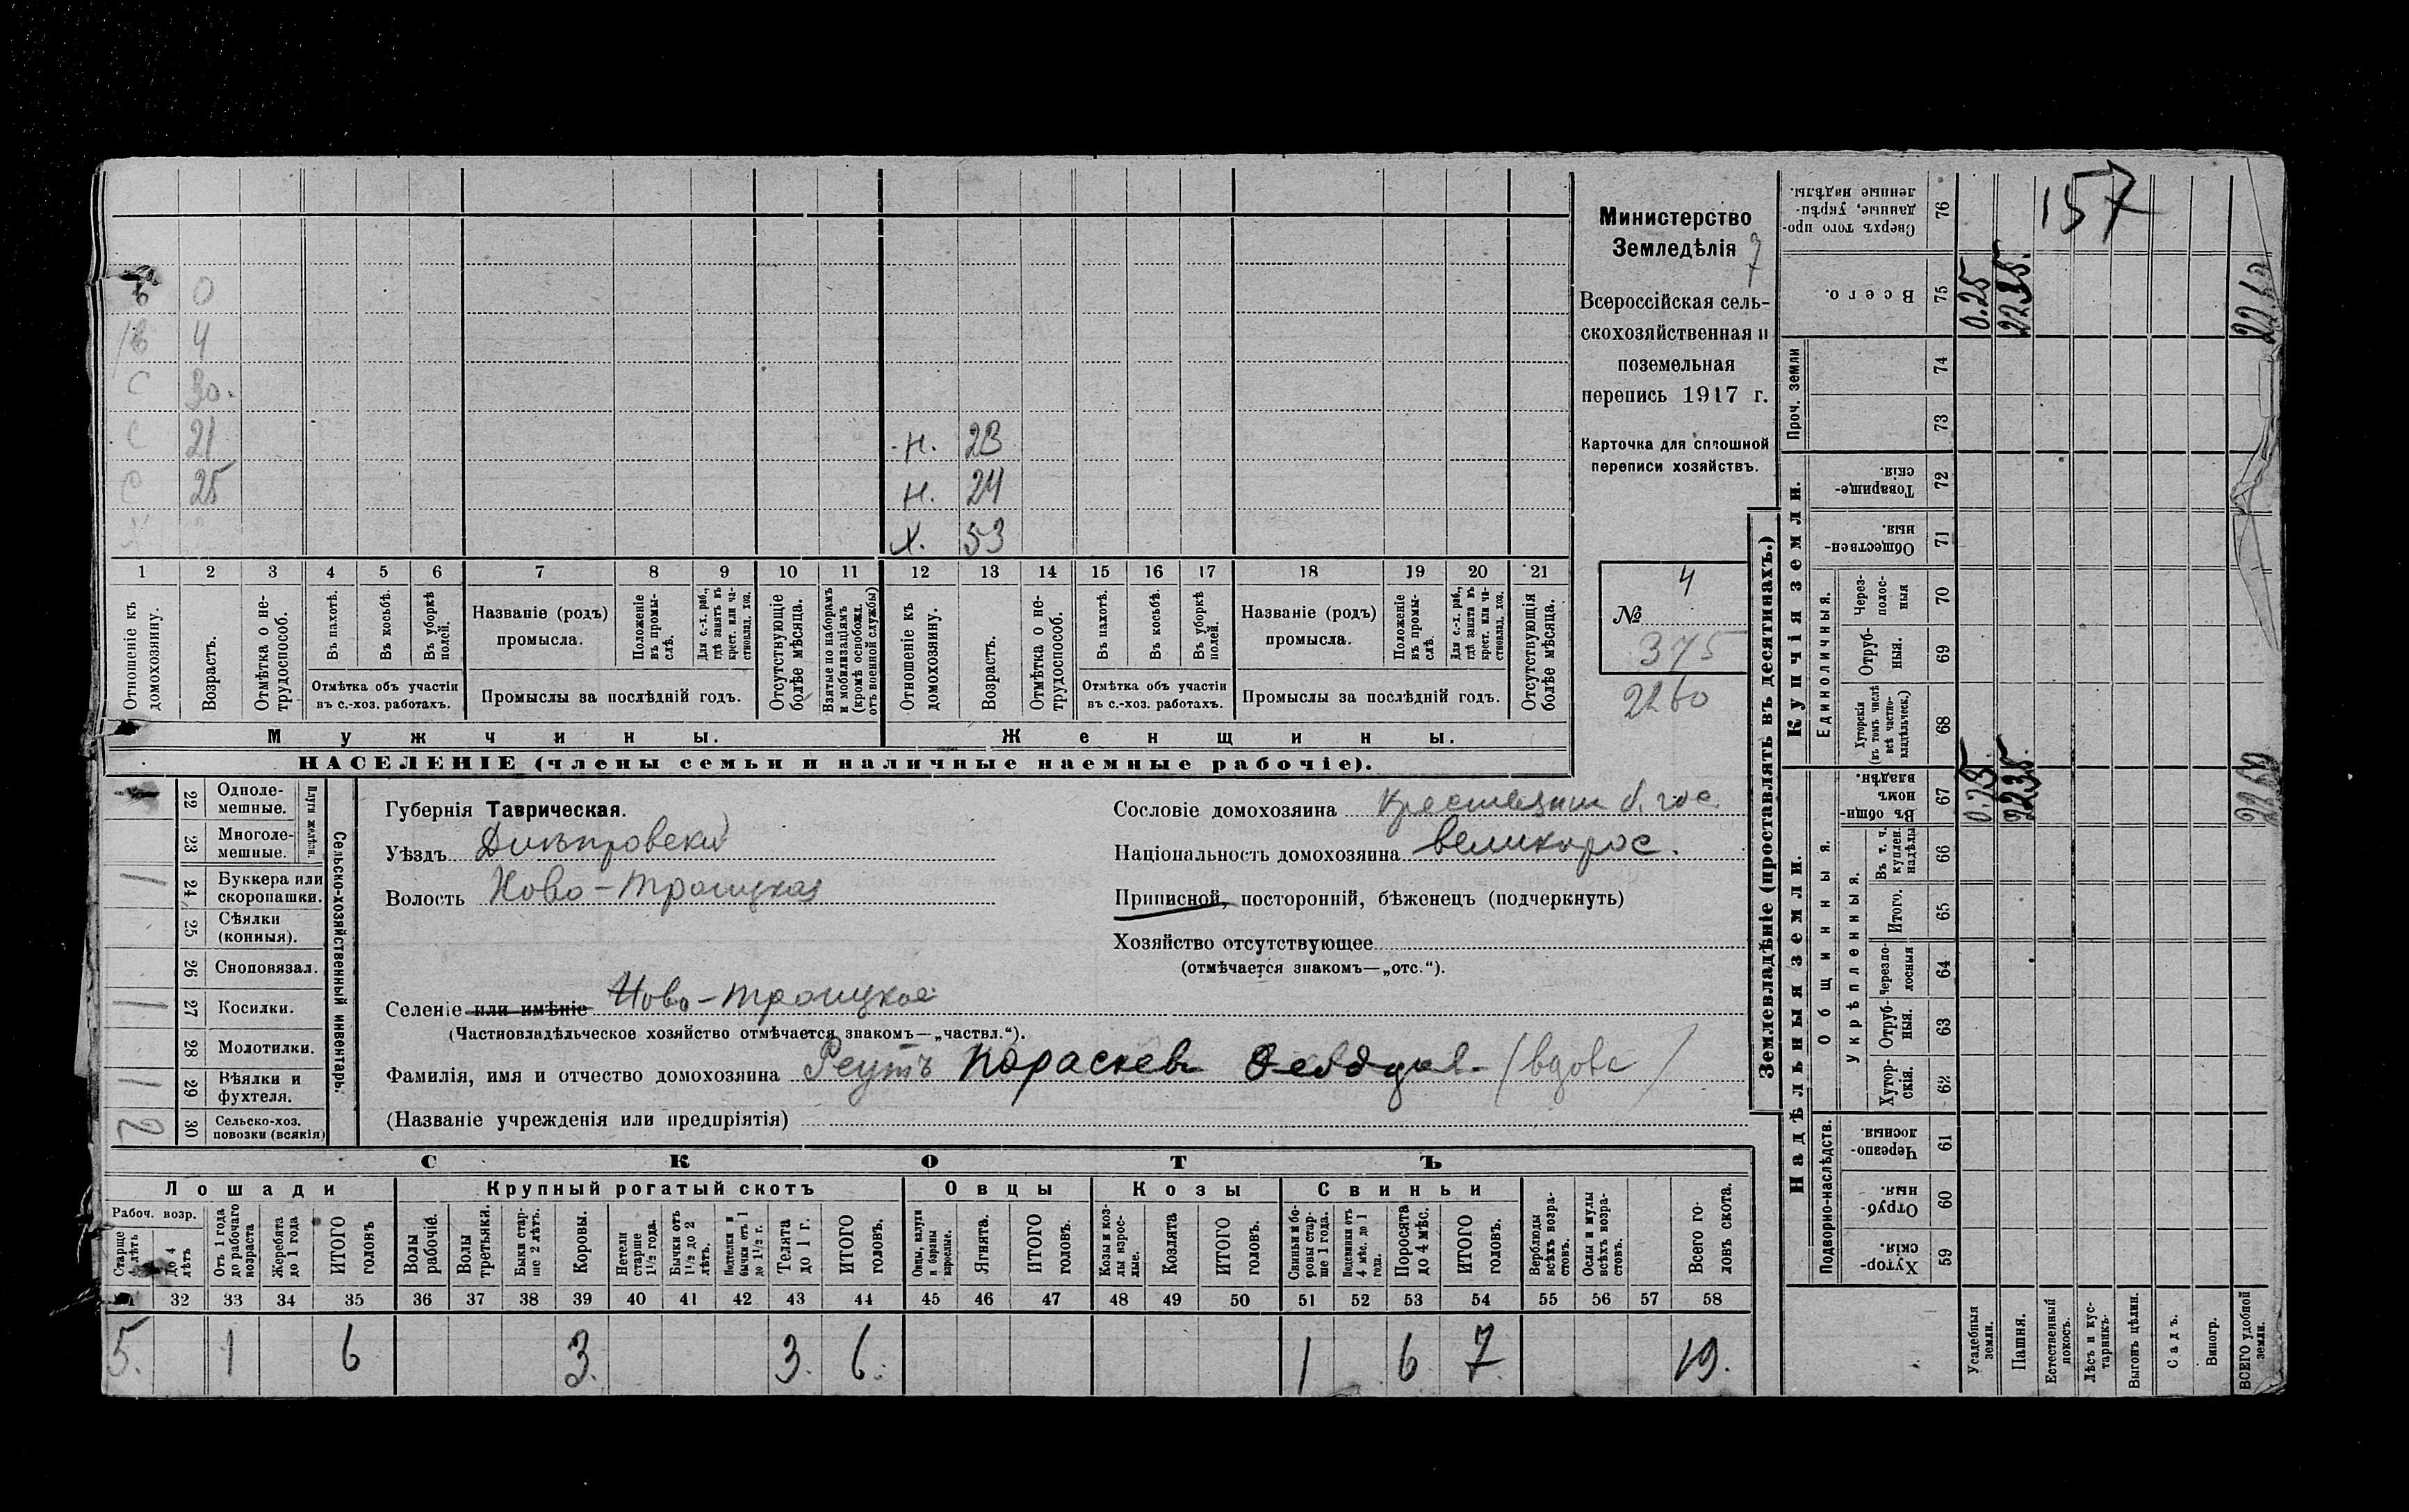 Министерство
Земледѣлія
7
Всероссійская сель-
скохозяйственная и
поземельная
перепись 1917 г.
Карточка для сплошной
переписи хозяйствъ.
4
№
375
2260
в 0
в 4
С 30.
С 21
С 25
н. 23
н. 24
Х. 53
1 2 3 4 5 6 7 8 9 10 11 12 13 14 15 16 17 18 19 20 21
Отношеніе къ домохозяину.
Возрастъ.
Отмѣтка о не-трудоспособ.
Въ пахотѣ.
Въ косьбѣ.
Въ уборкѣ полей.
Отмѣтка объ участіи
въ с.-хоз. работахъ.
Названіе (родъ)
промысла.
Положеніе въ промы-слѣ.
Для с.-х. раб., гдѣ занятъ въ крест. или ча-стновлад. хоз.
Промыслы за послѣдній годъ.
Отсутствующіе болѣе мѣсяца.
Взятые по наборамъ и мобилизаціямъ (кромѣ освобожд. отъ военной службы)
Отношеніе къ домохозяину.
Возрастъ.
Отмѣтка о не-трудоспособ.
Въ пахотѣ.
Въ косьбѣ.
Въ уборкѣ полей.
Отмѣтка объ участіи
въ с.-хоз. работахъ.
Названіе (родъ)
промысла.
Положеніе въ промы-слѣ.
Для с.-х. раб., гдѣ занята въ крест. или ча-стновлад. хоз.
Промыслы за послѣдній годъ.
Отсутствующія болѣе мѣсяца.
Мужчины.
Женщины.
НАСЕЛЕНІЕ (члены семьи и наличные наемные рабочіе).
22 Одноле-мешные.
23 Многоле-мешные.
Плуги желѣзн.
1 24 Буккера или скоропашки.
25 Сѣялки (конныя).
26 Сноповязал.
1 27 Косилки.
28 Молотилки.
1 29 Вѣялки и фухтеля.
2 30 Сельско-хоз. повозки (всякія)
Сельско-хозяйственный инвентарь.
Губернія Таврическая.
Уѣздъ Днѣпровскій
Волость Ново-Троицкая
Селеніе или имѣніе Ново-Троицкое
(Частновладѣльческое хозяйство отмѣчается знакомъ—„частвл.“).
Фамилія, имя и отчество домохозяина Реутъ Параскева (вдова)
(Названіе учрежденія или предпріятія)
Сословіе домохозяина б. гос.
Національность домохозяина великорос.
Приписной, посторонній, бѣженецъ (подчеркнуть)
Хозяйство отсутствующее
(отмѣчается знакомъ—„отс.“).
СКОТЪ
Лошади
Крупный рогатый скотъ
Овцы
Козы
Свиньи
Рабоч. возр.
Старше 4 лѣтъ
До 4 лѣтъ
Отъ 1 года до рабочаго возраста
Жеребята до 1 года
ИТОГО головъ
Волы рабочіе.
Волы третьяки.
Быки стар-ше 2 лѣтъ.
Коровы.
Нетели старше 1½ года.
Бычки отъ 1½ до 2 лѣтъ.
Нетелки и бычки отъ 1 до 1½ г.
Телята до 1 г.
ИТОГО головъ.
Овцы, валухи и бараны взрослые.
Ягнята.
ИТОГО головъ.
Козы и коз-лы взрос-лые.
Козлята
ИТОГО головъ.
Свиньи и бо-ровы стар-ше 1 года.
Подсвинки отъ 4 мѣс. до 1 года.
Поросята до 4 мѣс.
ИТОГО головъ.
Верблюды всѣхъ возра-стовъ.
Ослы и мулы всѣхъ возра-стовъ.
Всего го-ловъ скота.
32 33 34 35 36 37 38 39 40 41 42 43 44 45 46 47 48 49 50 51 52 53 54 55 56 57 58
5. 1 6 3. 3. 6. 1 6 7 19.
Землевладѣніе (проставлять въ десятинахъ.)
Надѣльныя земли.
Купчія земли.
Проч. земли
Подворно-наслѣдств.
Общинныя.
Укрѣпленныя.
Единоличныя.
Сверхъ того про-данные, укрѣп-ленные надѣлы. 76
157
Всего. 75 0.25 22.35. 22.60
74
73
Товарище-скія. 72
Обществен-ныя. 71
Через-полос-ныя 70
Отруб-ныя. 69
Хуторскія (въ томъ числѣ всѣ частно-владѣльческ.) 68
Въ общи-номъ владѣн. 67 0.25 22.35. 22.60
Въ т. ч. куплен. надѣлы 66
Итого. 65
Черезпо-лосныя 64
Отруб-ныя. 63
Хутор-скія. 62
Черезпо-лосныя. 61
Отруб-ныя. 60
Хутор-скія. 59
Усадебныя земли.
Пашня.
Естественный покосъ.
Лѣсъ и кус-тарникъ.
Выгонъ цѣлин.
Садъ.
Виногр.
ВСЕГО удобной земли.